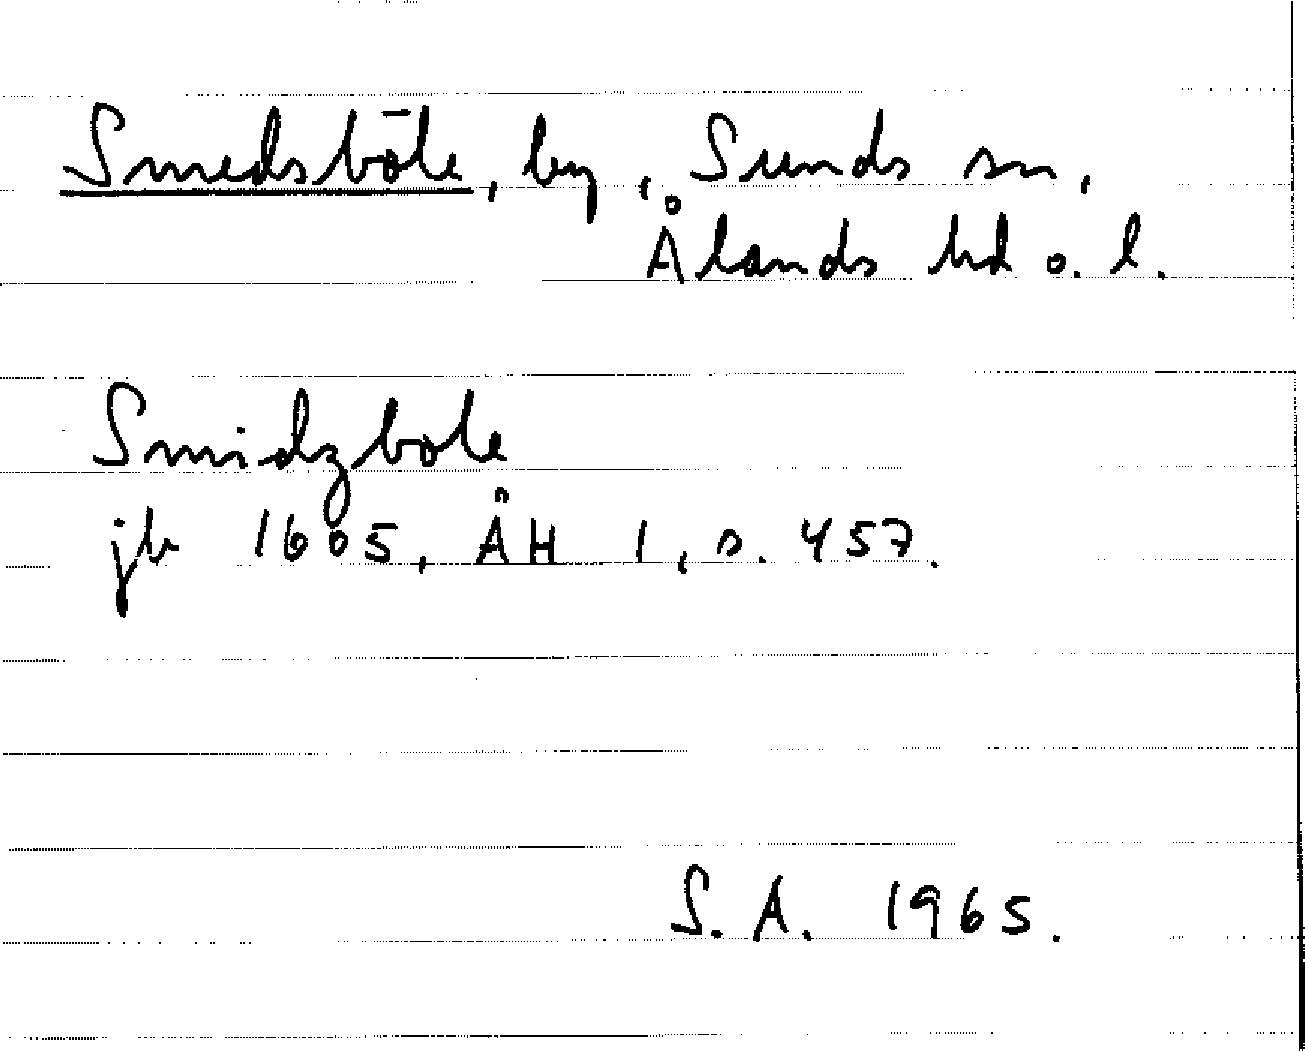 Smedsböle, by, Sunds sn,
Ålands hd o. l.
Smidzbole
jb 1605, ÅH 1, s. 457.
S. A. 1965.